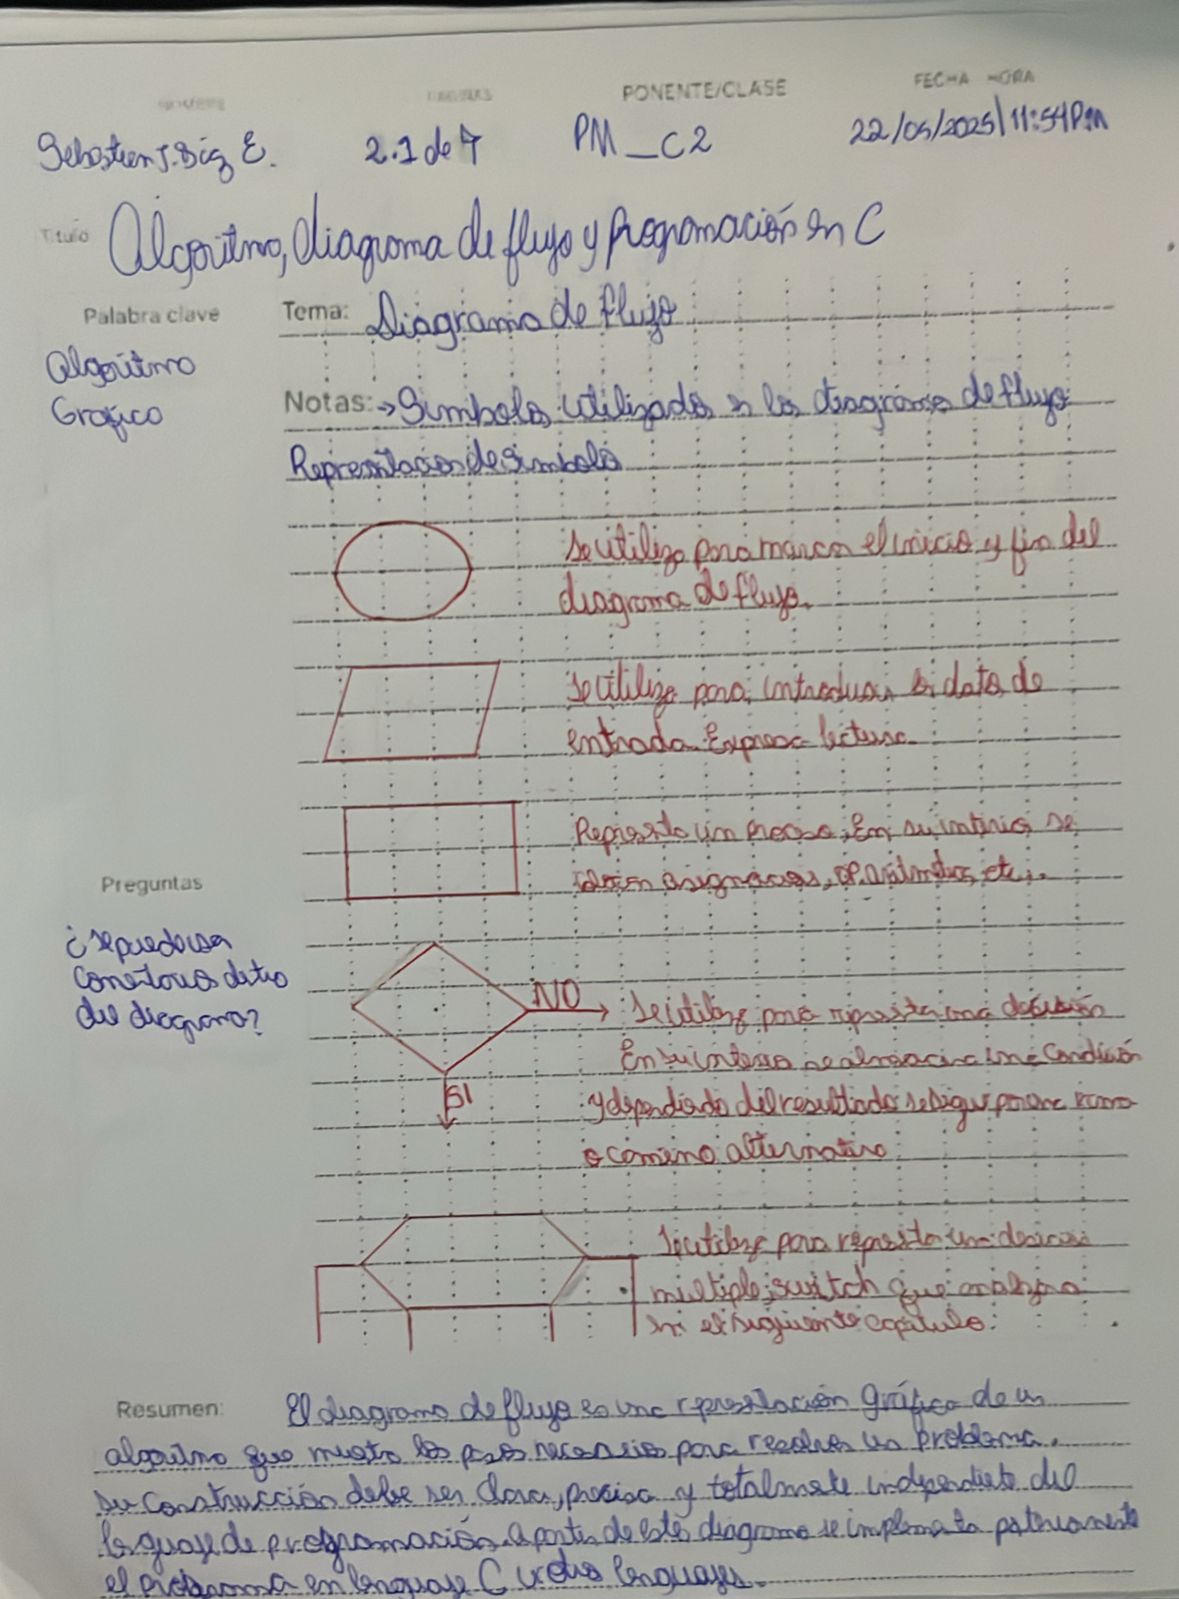 NOMBRE PAGINAS PONENTE/CLASE FECHA HORA
Sebastian J. E. 2.1 de 7 PM_C2 22/05/2025 | 11:54 P.m
Titulo Algoritmo, diagrama de flujo y Programación en C
Palabra clave Tema: Diagrama de flujo
Algoritmo
Grafico
Notas: → Simbolos utilizados en los diagramas de flujo
Representacion de simbolos
Se utiliza para marcar el inicio y fin del
diagrama de flujo.
Se utiliza para introducir los datos de
entrada. Expresa lectura
Representa un proceso. En su interior se
colocan asignaciones, op. aritmeticas, etc...
Preguntas
¿se puede usar
conectores dentro
del diagrama?
NO
Se utiliza para representar una decisión
En su interior se almacena una condición
SI
y dependiendo del resultado se sigue por una rama
o camino alternativo
Se utiliza para representar una decision
multiple, switch que analiza
en el siguiente capitulo.
Resumen: El diagrama de flujo es una representación gráfica de un
algoritmo que muestra los pasos necesarios para resolver un problema.
su construcción debe ser clara, precisa y totalmente independiente del
lenguaje de programación. a partir de este diagrama se implementa posteriormente
el programa en lenguaje C u otros lenguajes.